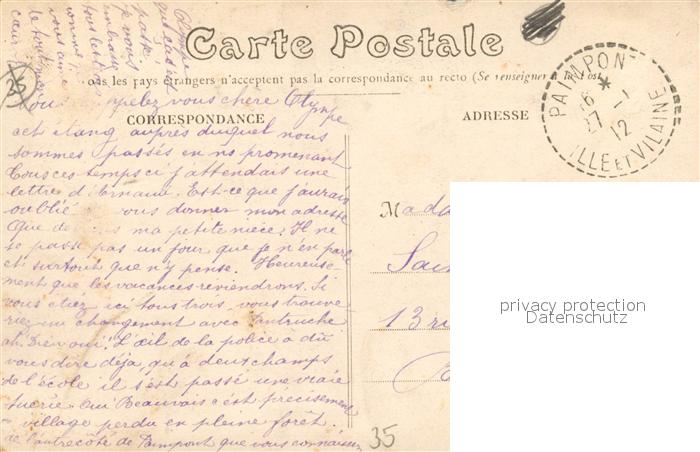 Carte Postale
ous les pays étrangers n'acceptent pas la correspondance au recto (Se renseigner à la Poste
CORRESPONDANCE
ADRESSE
PAIMPONT
* 
16 -1
27 12
ILLE ET VILAINE
pelez vous chère Olympe
cet étang auprès duquel nous
sommes passés en ns promenant
Tous ces temps ci j'attendais une
lettre d'Ernaud. Est-ce que j'aurais
oublié vous donner mon adresse
Que de ma petite nièce? Il ne
se passe pas un jour que je n'en parle
et surtout que n'y pense. Heureuse-
ment que les vacances reviendrons. Si
vous étiez ici tous trois vous trouve
riez un changement avec
ah Dieu oui! L'œil de la police a dû
vous dire déja, qu'à deux champs
de l'école il s'est passé une vraie
tuerie. Oui Beauvais c'est précisement
village perdu en pleine forêt.
de l'autre côté de Paimpont que vous connaissez
vous aime
de tout mon
cœur
Mada
Sain
13 ru
35
privacy protection
Datenschutz